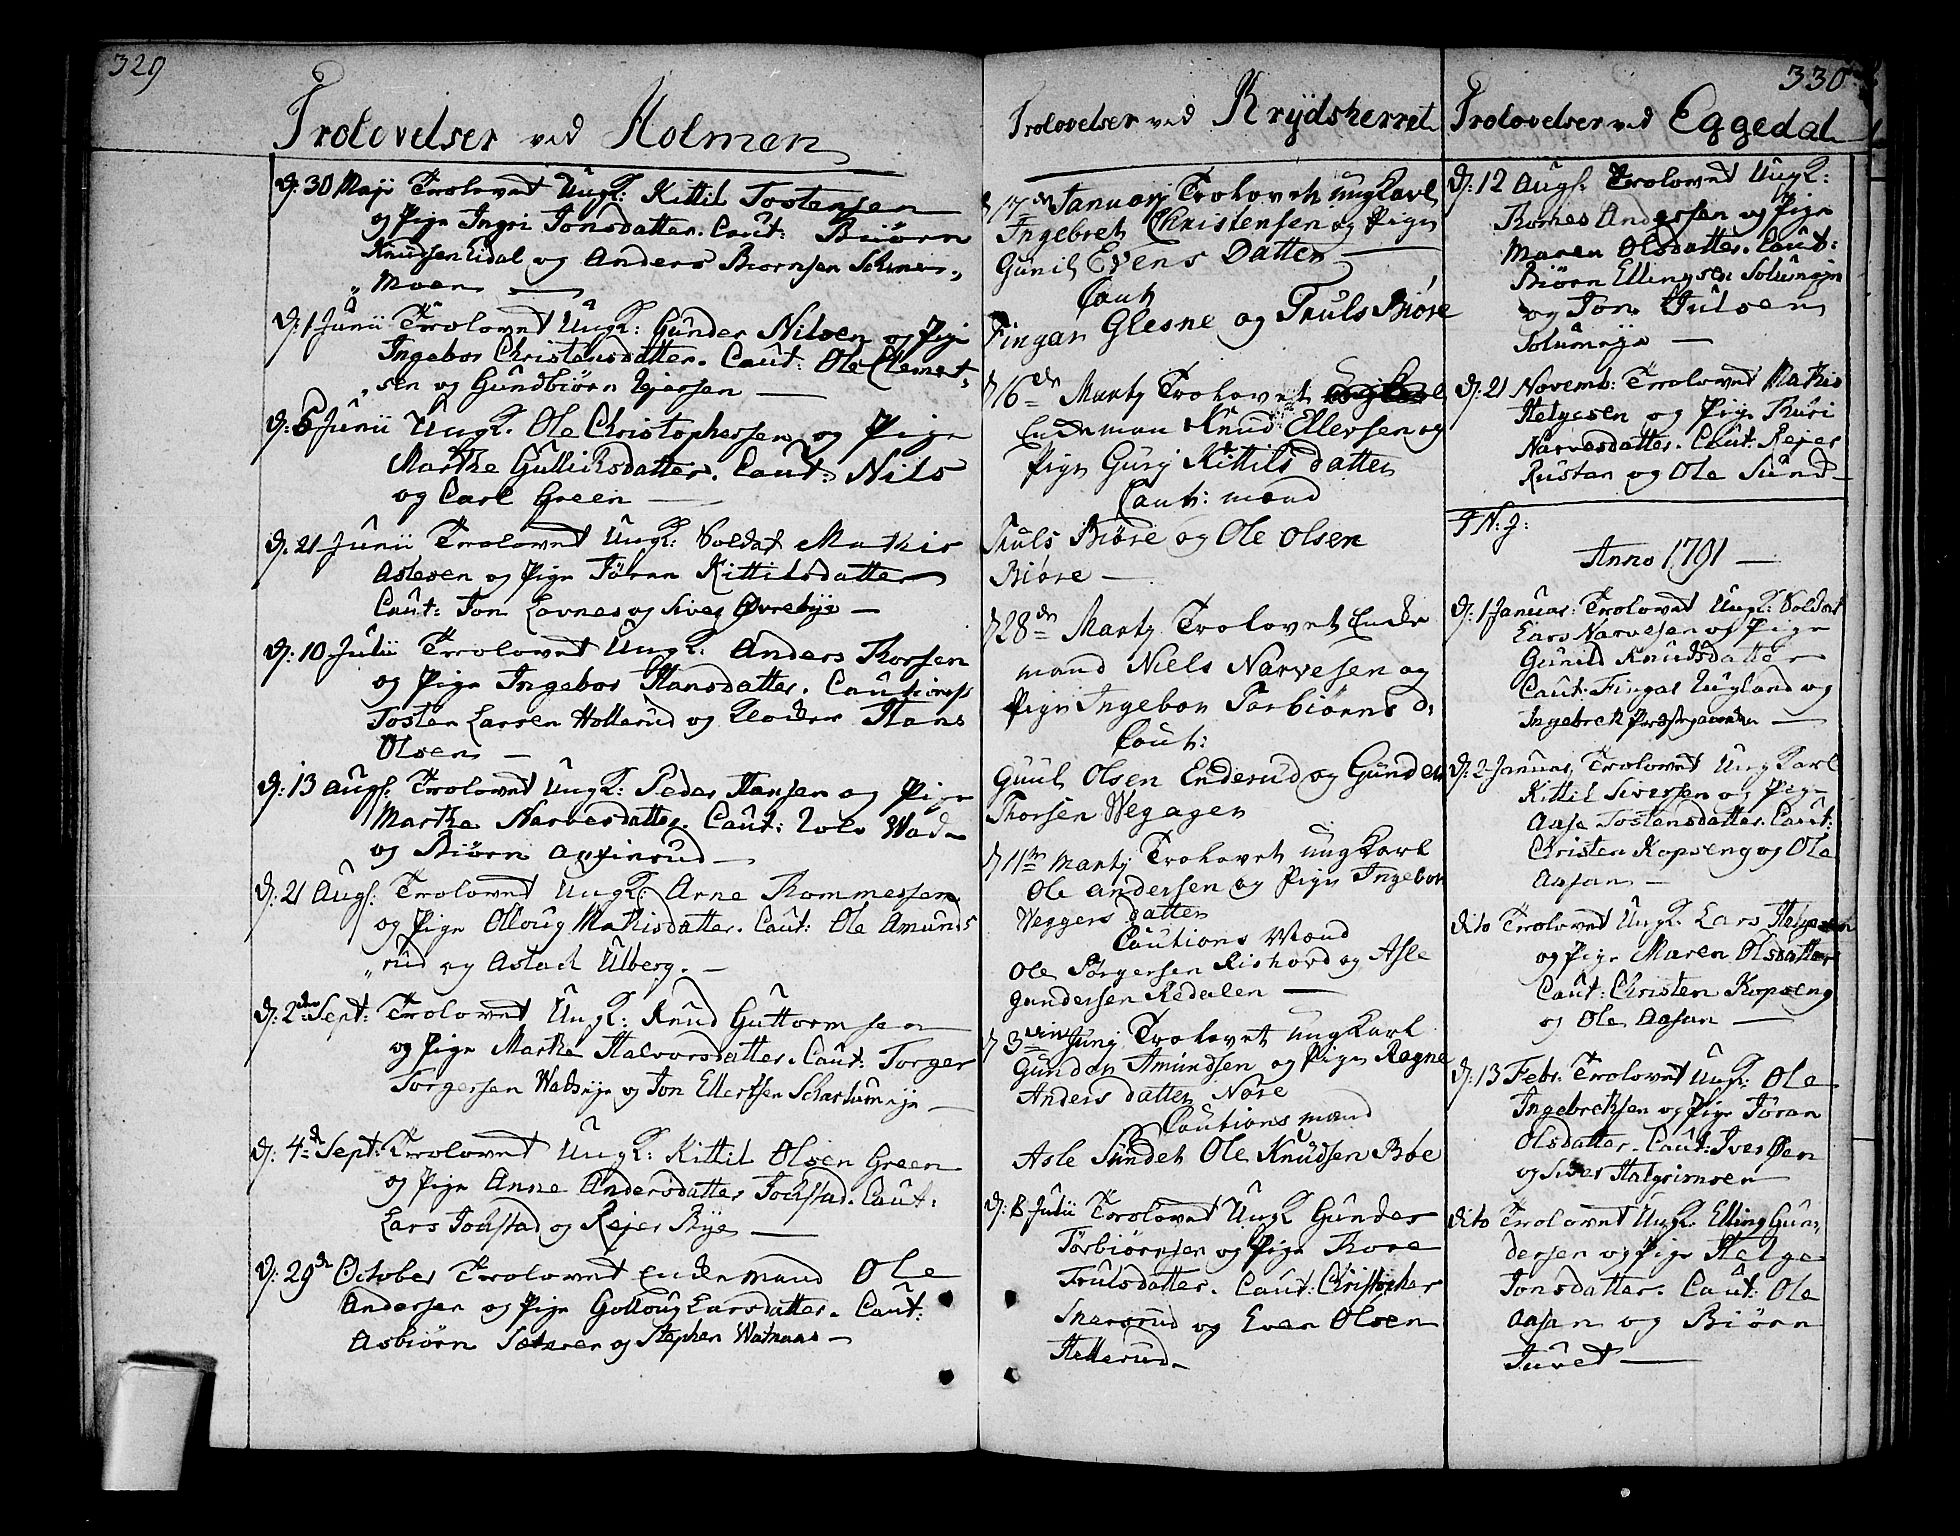 329
Trolovelser ved Holmen
d: 30 Maji Trolovet Ungk: Kittil Tostensen
og Pige Ingri Jonsdatter. Caut: Biörn
Knudsen Eidal og Anders Biörnsen
Moen
d: 1 Junii Trolovet Ungk: Gunder Nilsen og Pige
Ingebor Christensdatter. Caut: Ole Clemet-
sen og Gundbiörn
d: 5 Junii Ungk. Ole Christophersen og Pige
Marthe Gulliksdatter. Caut: Nils
og Carl Green
d. 21 Junii Trolovet Ungk: Soldat Mathis
Aslesen og Pige Jöran Kittilsdatter
Caut: Jon Lovnes og Siver Øvrebye
d: 10 Julii Trolovet Ungk: Anders Thorsen
og Pige Ingebor Hansdatter.
Tosten Larsen Hollerud og Hans
Olsen
d: 13 Augs: Trolovet Ungk: Peder Hansen og Pige
Marthe Narvesdatter. Caut:
og Biörn
d: 21 Augs: Trolovet Ungk: Arne Thommessen
og Pige Olloug Mathisdatter. Caut: Ole Amunds
rud og Aslack Ulberg.
d: 2den Sept: Trolovet Ungk: Knud Guttormsen
og Pige Marthe Halvorsdatter. Caut: Torger
Torgersen og Jon Ellertsen
d: 4de Sept: Trolovet Ungk: Kittil Olsen Green
og Pige Anne Andersdatter Jokstad. Caut:
Lars Jokstad og Rejer Bye
d: 29de October Trolovet Enckemand Ole
Andersen og Pige Golloug Larsdatter. Caut:
Asbiörn og Stephen
Trolovelser ved Krydsherret
d 17de Januarj Trolovet ungKarl
Ingebret Christensen og Pige
Gunil Evens Datter
Caut
Fingar Glesne og Truls Biöre
d 16de Martj Trolovet
Enckeman Knud Ellevsen og
Pige Gurj Kittils datter
Caut: mænd
Truls Biöre og Ole Olsen
Biöre
d 28de Martj Trolovet Encke
mand Niels Narvesen og
Pige Ingebor Torbiörns d:
Caut:
Guul Olsen Enderud og Gunder
Thorsen
d 11te Martj Trolovet ungKarl
Ole Andersen og Pige Ingebor
Veggers datter
Cautions Mænd
Ole Torgersen og Asle
Gundersen Redalen
d 3die Junj Trolovet ungKarl
Gunder Amundsen og Pige Ragne
Anders datter Nore
Cautions mænd
Asle Sundet Ole Knudsen Böe
d: 8 Julii Trolovet Ungk Gunder
Torbiörnsen og Pige Thore
Trulsdatter. Caut: Christopher
og Even Olsen
Hellerud
330
Trolovelser ved Eggedal
d: 12 Augs: Trolovet Ungk:
Thomes Anderssen og Pige
Maren Olsdatter. Caut:
Biörn Ellingsen
og Jon Julsen
d: 21 Novemb: Trolovet Mathis
Helgesen og Pige Thuri
Narvesdatter. Caut: Rejer
Rustan og Ole Sund
I N: J:
Anno 1791
d: 1 Januar: Trolovet Ungk: Soldat
Lars Narvesen og Pige
Gunild Knudsdatter
Caut: Fingar Ugland og
Ingebrek
d: 2 Januar, Trolovet Ungkarl
Kittil Siversen og Pige
Aase Tostensdatter. Caut:
Christen Kopseng og Ole
Aasan
dito Trolovet Ungk. Lars Helgesen
og Pige Maren Olsdatter
Caut: Christen Kopseng
og Ole Aasan
d: 13 Febr: Trolovet Ungk: Ole
Ingebrektsen og Pige Jöran
Olsdatter. Caut: Iver
og Siver Halgrimsen
dito Trolovet Ungk. Elling Gun-
dersen og Pige Helge
Jonsdatter. Caut: Ole
Aasan og Biörn
Juvet